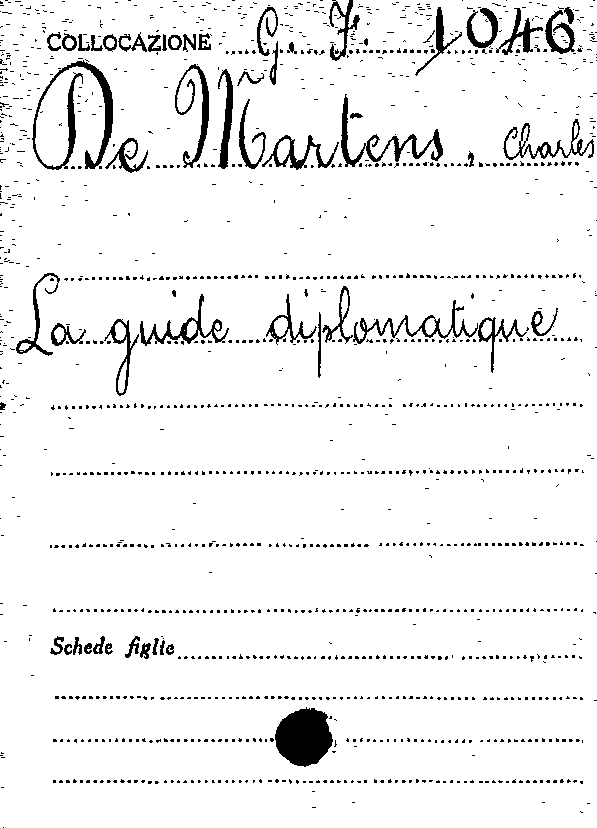 COLLOCAZIONE G. F. 1046
De Martens, Charles
La guide diplomatique
Schede figlie